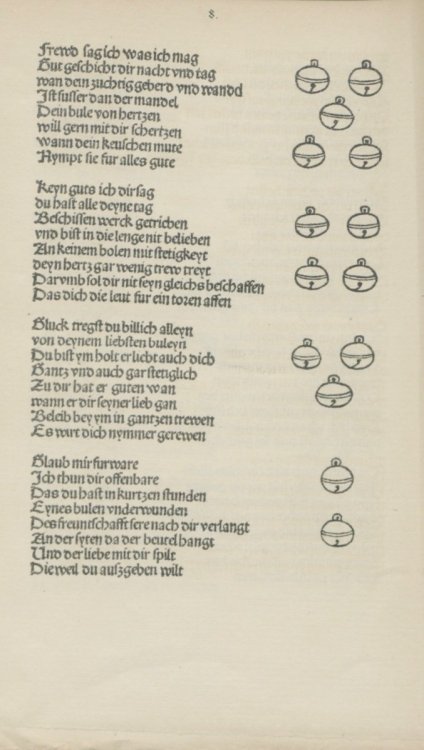 8.
Frewd sag ich was ich mag
Gut geschicht dir nacht vnd tag
wan dein zuchtig geberd vnd wandd
Ist susser dan der mandel
Dein bule von hertzen
will gern mit dir schertzen
wann dein keuschen mute
Nympt sie fur alles gute
Keyn guts ich dir sag
du hast alle deyne tag
Beschissen werck getriben
vnd bist in die lenge nit beliben
An keinem bolen mit stetigkeyt
deyn hertz gar wenig trew treyt
Darvmb sol dir nit seyn gleichs beschaffen
Das dich die leut fur ein toren affen
Gluck tregst du billich alleyn
von deynem liebsten buleyn
Du bist ym holt er liebt auch dich
Gantz vnd auch gar stetiglich
Zu dir hat er guten wan
wann er dir seyner lieb gan
Beleib bey ym in gantzen trewen
Es wirt dich nymmer gerewen
Glaub mir furware
Ich thun dir offenbare
Das du hast in kurtzen stunden
Eynes bulen vnderwunden
Des freuntschafft sere nach dir verlangt
An der syten da der beutel hangt
Und der liebe mit dir spilt
Die weil du auszgeben wilt